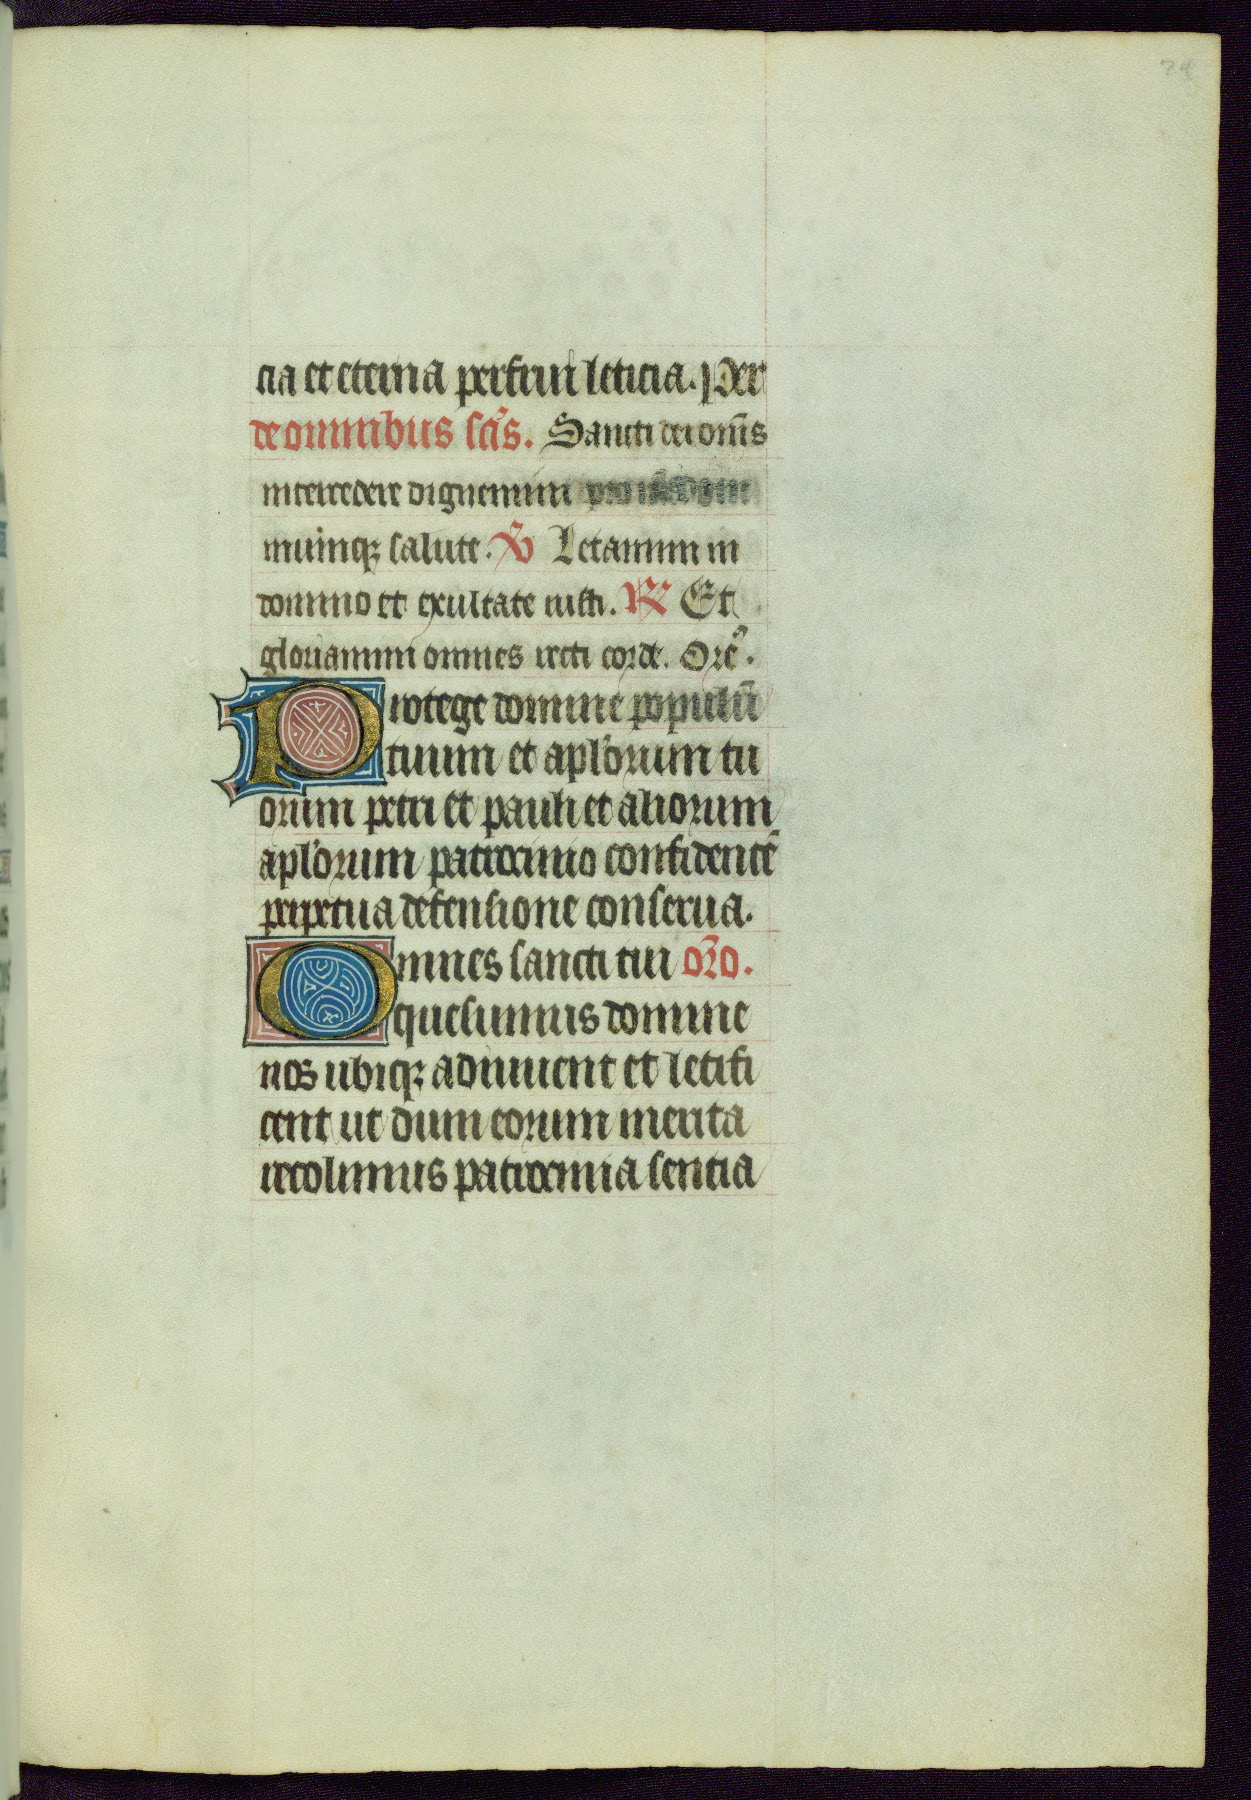 cia et eterna perfrui leticia. Per
de omnibus scis. Sancti dei om̄s
intercedere dignemini pro nostra om
niumq; salute. ℣ Letamini in
domino et exultate iusti. ℟ Et
gloriamini omnes recti corde. Ore᷒.
Protege domine populū
tuum et aplorum tu
orum petri et pauli et aliorum
aplorum patrocinio confidentē
perpetua defensione conserua.
Omnes sancti tui oro.
quesumus domine
nos ubiq; adiuuent et letifi
cent ut dum eorum merita
recolimus patrocinia sencia